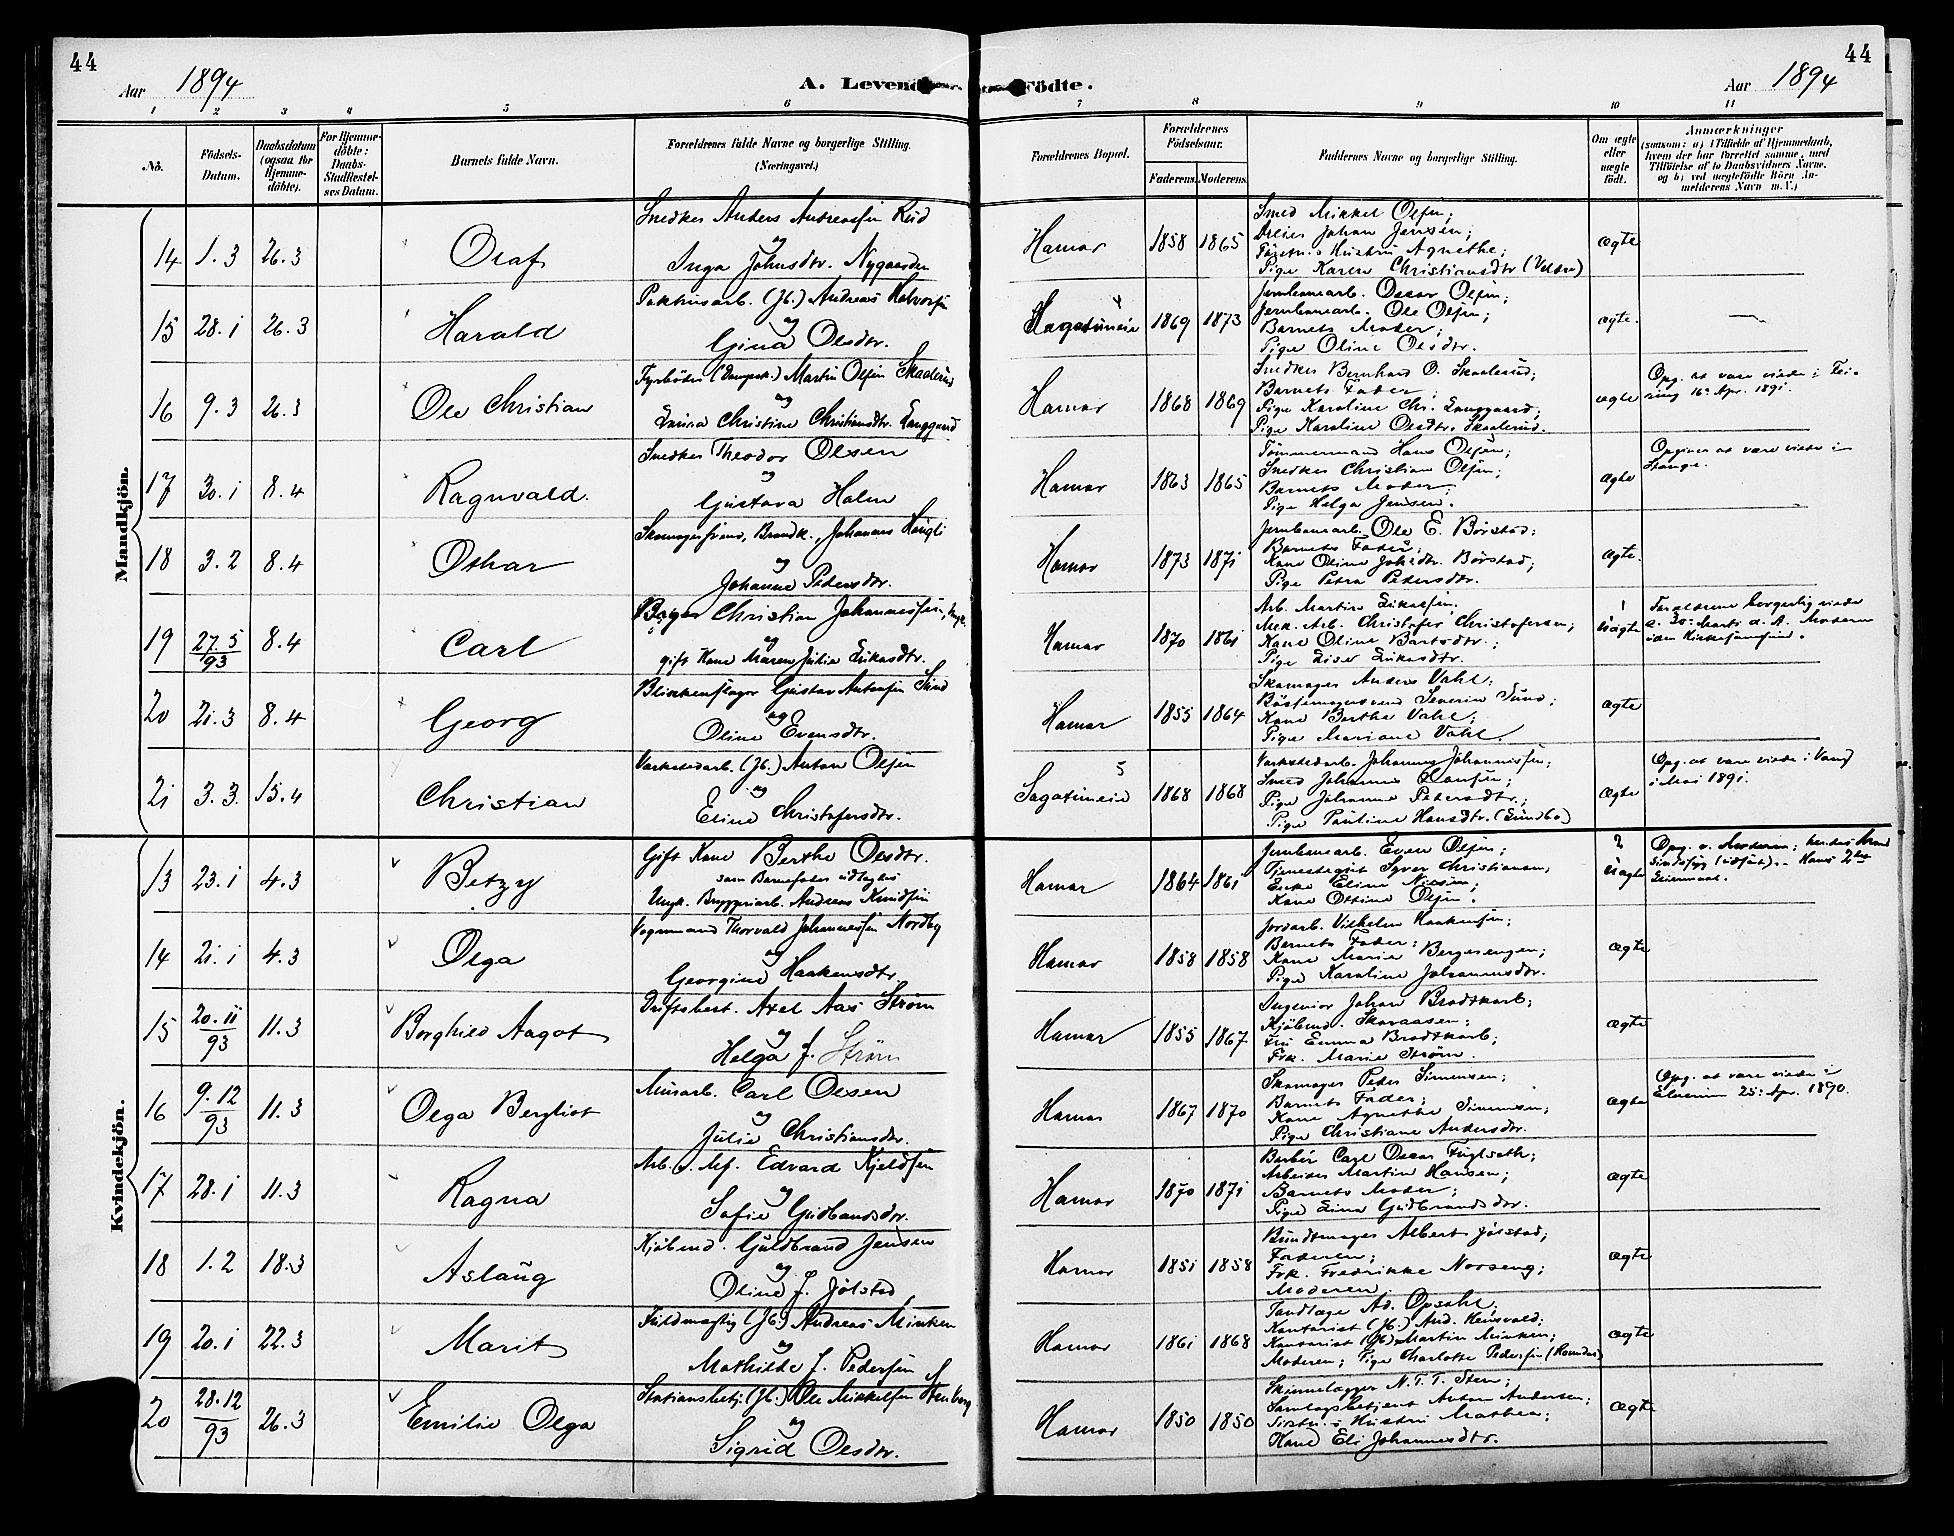 44
44
Aar 1894
A. Levende Födte.
Aar 1894
1 2 3 4 5 6 7 8 9 10 11
No.
Födsels-Datum.
Daabsdatum (ogsaa for Hjemmedöbte).
For Hjemmedöbte: Daabs-Stadfæstelses Datum.
Barnets fulde Navn.
Forældrenes fulde Navne og borgerlige Stilling. (Næringsvei.)
Forældrenes Bopæl.
Forældrenes Födselsaar.
Faderens. Moderens.
Faddernes Navne og borgerlige Stilling.
Om ægte eller uægte födt.
Anmærkninger
(saasom: a) i Tilfælde af Hjemmedaab, hvem der har forrettet samme, med Tilföielse af to Daabsvidners Navne, og b) ved uægtefödte Börn Anmelderens Navn m. V.)
Mandkjön.
14 1.3 26.3 Olaf
Snedker Anders Andreassen Rud
og
Inga Johnsdtr. Nygaarden
Hamar 1858 1865
Smed Mikkel Olsen;
Johan Jensen;
Hustru Agnethe;
Pige Karen Christiansdtr
ægte
15 28.1 26.3 Harald
Pakhusarb. (Jb.) Andreas Halvorsen
og
Gina Olsdtr.
4
1869 1873
Jernbanearb. Oscar Olsen;
Jernbanearb. Ole Olsen;
Barnets Moder;
Pige Oline Olsdtr.
ægte.
16 9.3 26.3 Ole Christian
Fyrbøder (Dampsk.) Martin Olsen Skaalerud
og
Christine Christiansdtr. Langgaard
Hamar 1868 1869
Snedker Bernhard O. Skaalerud;
Barnets Fader;
Pige Karoline Chr. Langgaard;
Pige Karoline Olsdtr. Skaalerud.
ægte
Opg. at være viede i Feiring 16. Apr. 1891.
17 30.1 8.4 Ragnvald.
Snedker Theodor Olsen
og
Gustava Holm
Hamar 1863 1865
Tømmermand Hans Olsen;
Snedker Christian Olsen;
Barnets Moder;
Pige Helga Jensen.
ægte
Opgives at være viede i Stange.
18 3.2 8.4 Oskar
Skomagersvend, Johannes Haugli
og
Johanne Pedersdtr.
Hamar 1873 1871
Jernbanearb. Ole E. Børstad;
Barnets Fader;
Kone Oline Johsdtr. Børstad;
Pige Petra Petersdtr.
ægte.
19 27.5/93 8.4 Carl
Bager Christian Johannessen,
og
gift Kone Maren Julie Eriksdtr.
Hamar 1870 1861
Arb. Martin Eriksen;
Mek. Arb. Christofer Christofersen;
Kone Oline
Pige Eriksdtr.
1
uægte
Forældrene borgerlig viede
Moderen
20 21.3 8.4 Georg
Blikkenslager Gustav Antonsen Sund
og
Oline Evensdtr.
Hamar 1855 1864
Skomager Anders Vahl;
Bøssemagersvend Severin Sund;
Kone Berthe Vahl;
Pige Mariane Vahl.
ægte
21 3.3. 15.4 Christian
Værkstedarb. (Jb.) Anton Olsen
og
Eline Christofersdtr.
5
Sagatuneie 1868 1868
Værkstedarb. Johannes Johannessen;
Smed Johannes Hansen;
Pige Johanne Petersdtr.;
Pige Pauline Hansdtr. (Lundbo)
ægte
Opg. at være viede i Vang i Mai 1891.
Kvindekjön.
13 23.1 4.3 Betzy
Gift Kone Berthe Olsdtr.
som Barnefader udlagdes
Ungk. Bryggeriarb. Andreas Knudsen
Hamar 1864 1861
Jernbanearb. Even Olsen;
Tjenestegut Syver Christiansen;
Enke Eline Nilsen;
Kone Ottine Olsen.
2
uægte
Opg. a. Moderen; hendes Mand
14 21.1 4.3 Olga
Vognmand Thorvald Johannessen Nordby
og
Georgine Haakensdtr.
Hamar 1858 1858
Jordarb. Vilhelm Haakensen;
Barnets Fader;
Kone Marie Bergersengen;
Pige Karoline Johannesdtr.
ægte
15 20.11/93 11.3 Borghild Aagot
Driftsbest. Axel Aas Strøm
og
Helga J. Strøm
Hamar 1855 1867
Ingeniør Johan Brodtkorb;
Kjøbmd. Skaraasen;
Fru Emma Brodtkorb;
Frk. Marie Strøm.
ægte
16 9.12/93 11.3 Olga Bergliot
Murarb. Carl Olsen
og
Julie Christiansdtr.
Hamar 1867 1870
Skomager Peder Simensen;
Barnets Fader;
Kone Agnethe Simensen;
Pige Christiane Andersdtr.
ægte
Opg. at være viede i Elverum 25. Apr. 1890.
17 28.1 11.3 Ragna
Arb. Edvard Kjeldsen
og
Sofie Gudbrandsdtr.
Hamar 1870 1871
Barber Carl Oscar Fuglseth;
Arbeider Martin Hansen;
Barnets Moder;
Pige Lina Gudbrandsdtr.
ægte
18 1.2 18.3 Aslaug
Kjøbmd. Guldbrand Jensen
og
Oline J. Jølstad
Hamar 1851 1858
Bundtmager Albert Jølstad;
Faderen;
Frk. Fredrikke Norseng;
Moderen.
ægte
19 20.1 22.3 Marit
Fuldmægtig (Jb.) Andreas Minken
og
Mathilde J. Pedersen
Hamar 1861 1868
Tandlæge Ad. Opsahl;
Kontorist (Jb.) And.
Kontorist (Jb.) Martin Minken;
Moderen; Pige Charlotte Pedersen
ægte
20 28.12/93 26.3 Emilie Olga
Stationsbetj. (Jb.) Ole Mikkelsen Stenberg
og
Sigrid Olsdtr.
Hamar 1850 1850
Skinnelægger N. T. T. Steen;
Anton Andersen;
Hustru Mathea;
Kone Eli Johannesdtr.
ægte